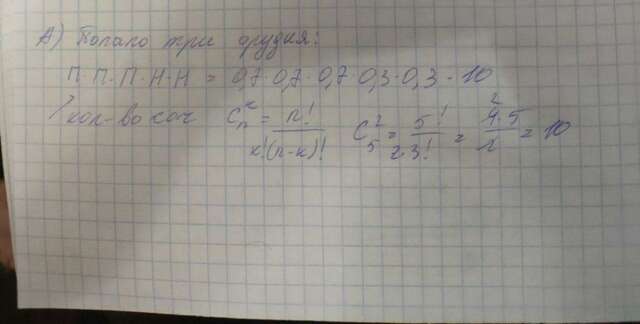 А) Попало три орудия:
П·П·П·Н·Н = 0,7·0,7·0,7·0,3·0,3·10
кол-во соч C_n^k = n!/k!(n-k)! C_5^2 = 5!/2·3! = 4·5/2 = 10